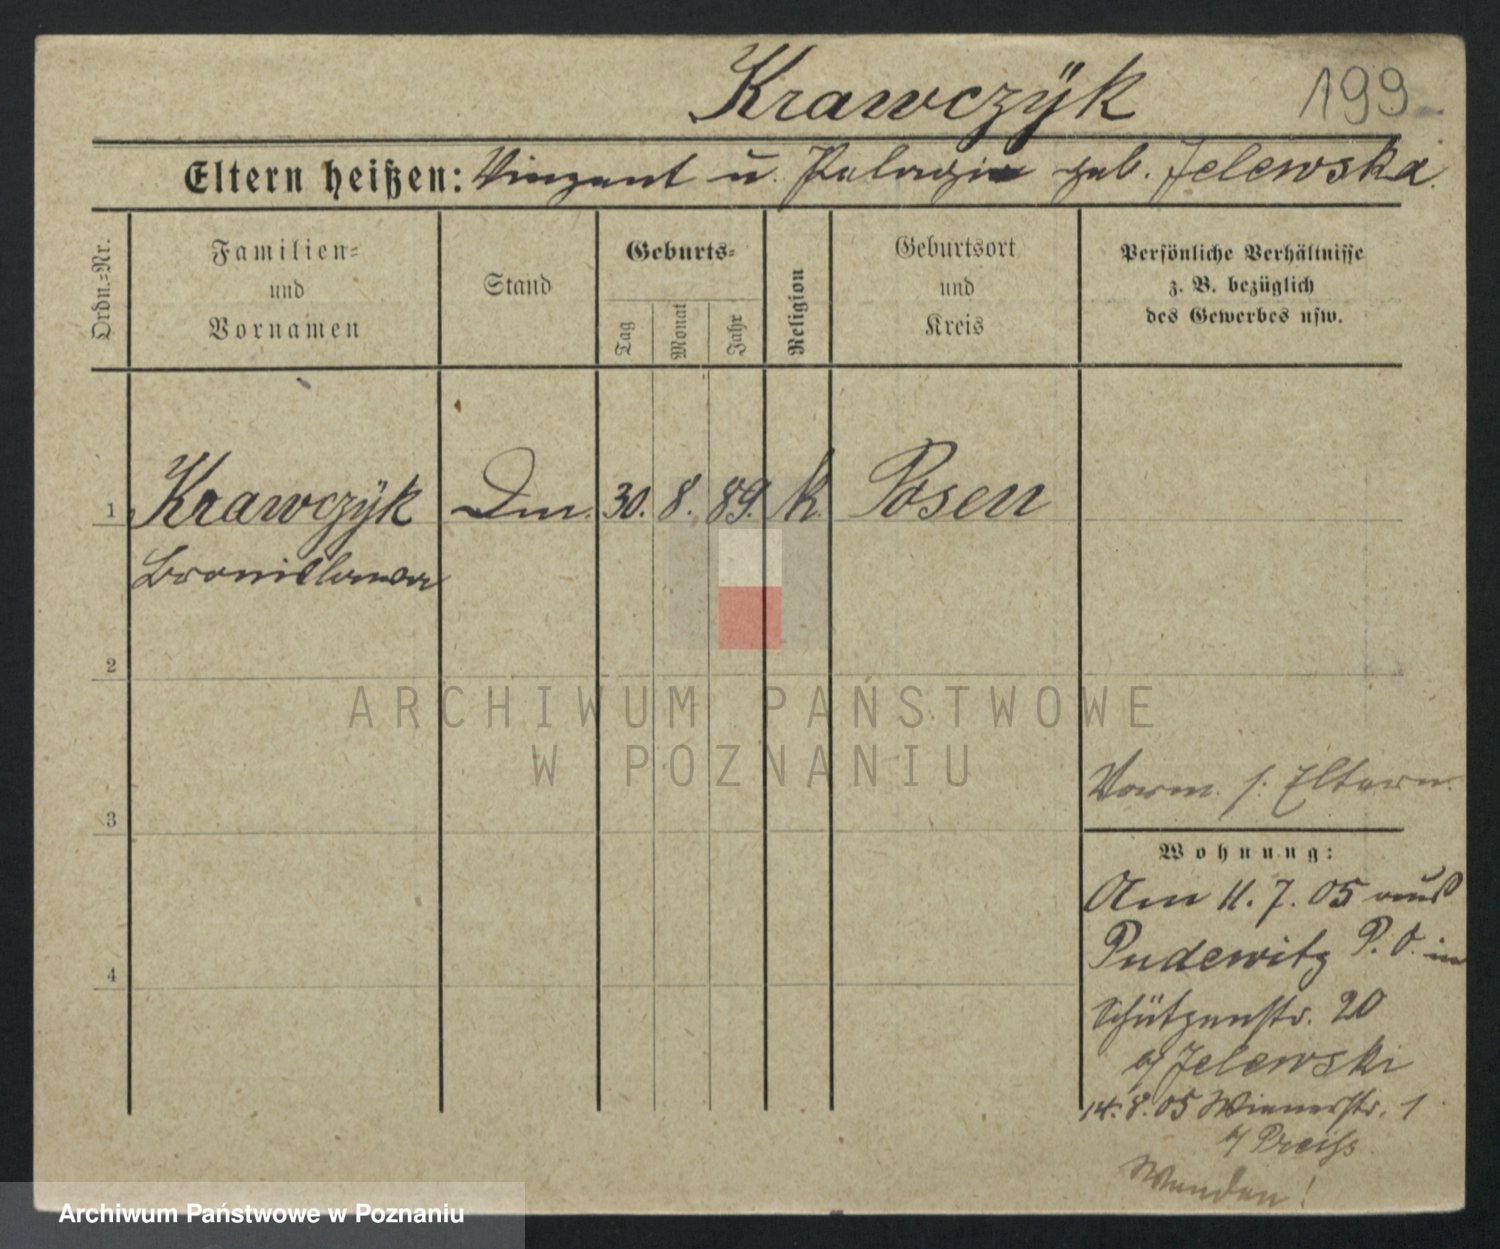 Krawczÿk 199
Eltern heißen: Vinzent u. Pelagie geb. Jelewska.
Ordn.-Nr.
Familien-
und
Vornamen
Stand
Geburts-
Tag
Monat
Jahr
Religion
Geburtsort
und
Kreis
Persönliche Verhältnisse
z. B. bezüglich
des Gewerbes usw.
1 Krawczÿk Dm. 30. 8. 89. k. Posen
Bronislawa
2
3
4
ARCHIWUM PAŃSTWOWE
W POZNANIU
Vorm. s. Eltern.
Wohnung:
Am 11. 7. 05 aus
Pudewitz P. O. in
Schützenstr. 20
b/ Jelewski
14. 8. 05 Wienerstr. 1
b/ Preiss
Wenden!
Archiwum Państwowe w Poznaniu